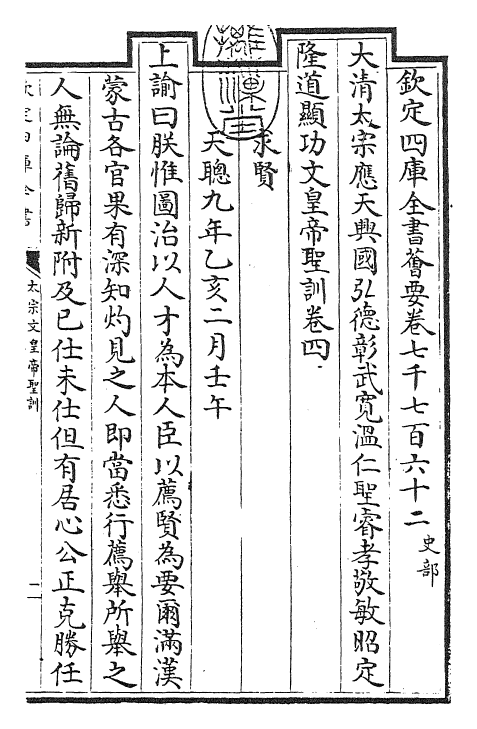 欽定四庫全書薈要卷七千七百六十二 史部
大清太宗應天興國弘德彰武寬溫仁聖睿孝敬敏昭定
隆道顯功文皇帝聖訓卷四
求賢
天聰九年乙亥二月壬午
上諭曰朕惟圖治以人才為本人臣以薦賢為要爾滿漢
蒙古各官果有深知灼見之人即當悉行薦舉所舉之
人無論舊歸新附及已仕未仕但有居心公正克勝任
太宗文皇帝聖訓